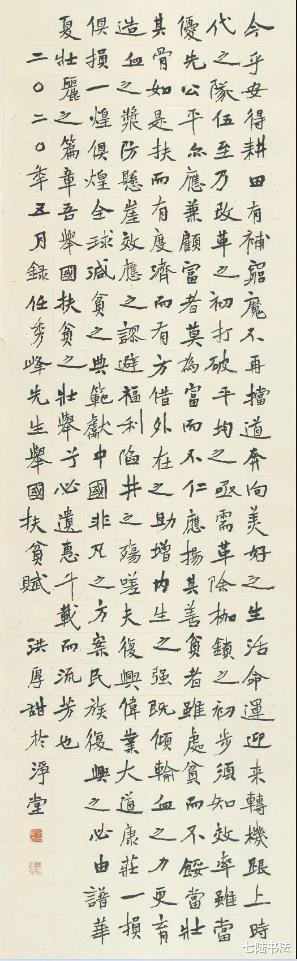 今乎安得耕田有補窮魔不再擋道奔向美好之生活命運迎来轉機跟上時
代之隊伍至乃改革之初打破平均之亟需革除枷鎖之初步須知效率雖當
優先公平亦應兼顧富者莫為富而不仁應揚其善貧者雖處貧而不餒當壯
其骨如是扶而有度濟而有方借外在之助增内生之强既傾輸血之力更育
造血之漿防懸崖效應之謬避福利陷井之殤嗟夫復興偉業大道康莊一損
俱損一煌俱煌全球减貧之典範獻中國非凡之方案民族復興之必由譜華
夏壯麗之篇章吾舉國扶貧之壯舉兮必遺惠千載而流芳也
二〇二〇年五月録任秀峰先生舉國扶貧賦 洪厚甜於淨堂
七陆书法